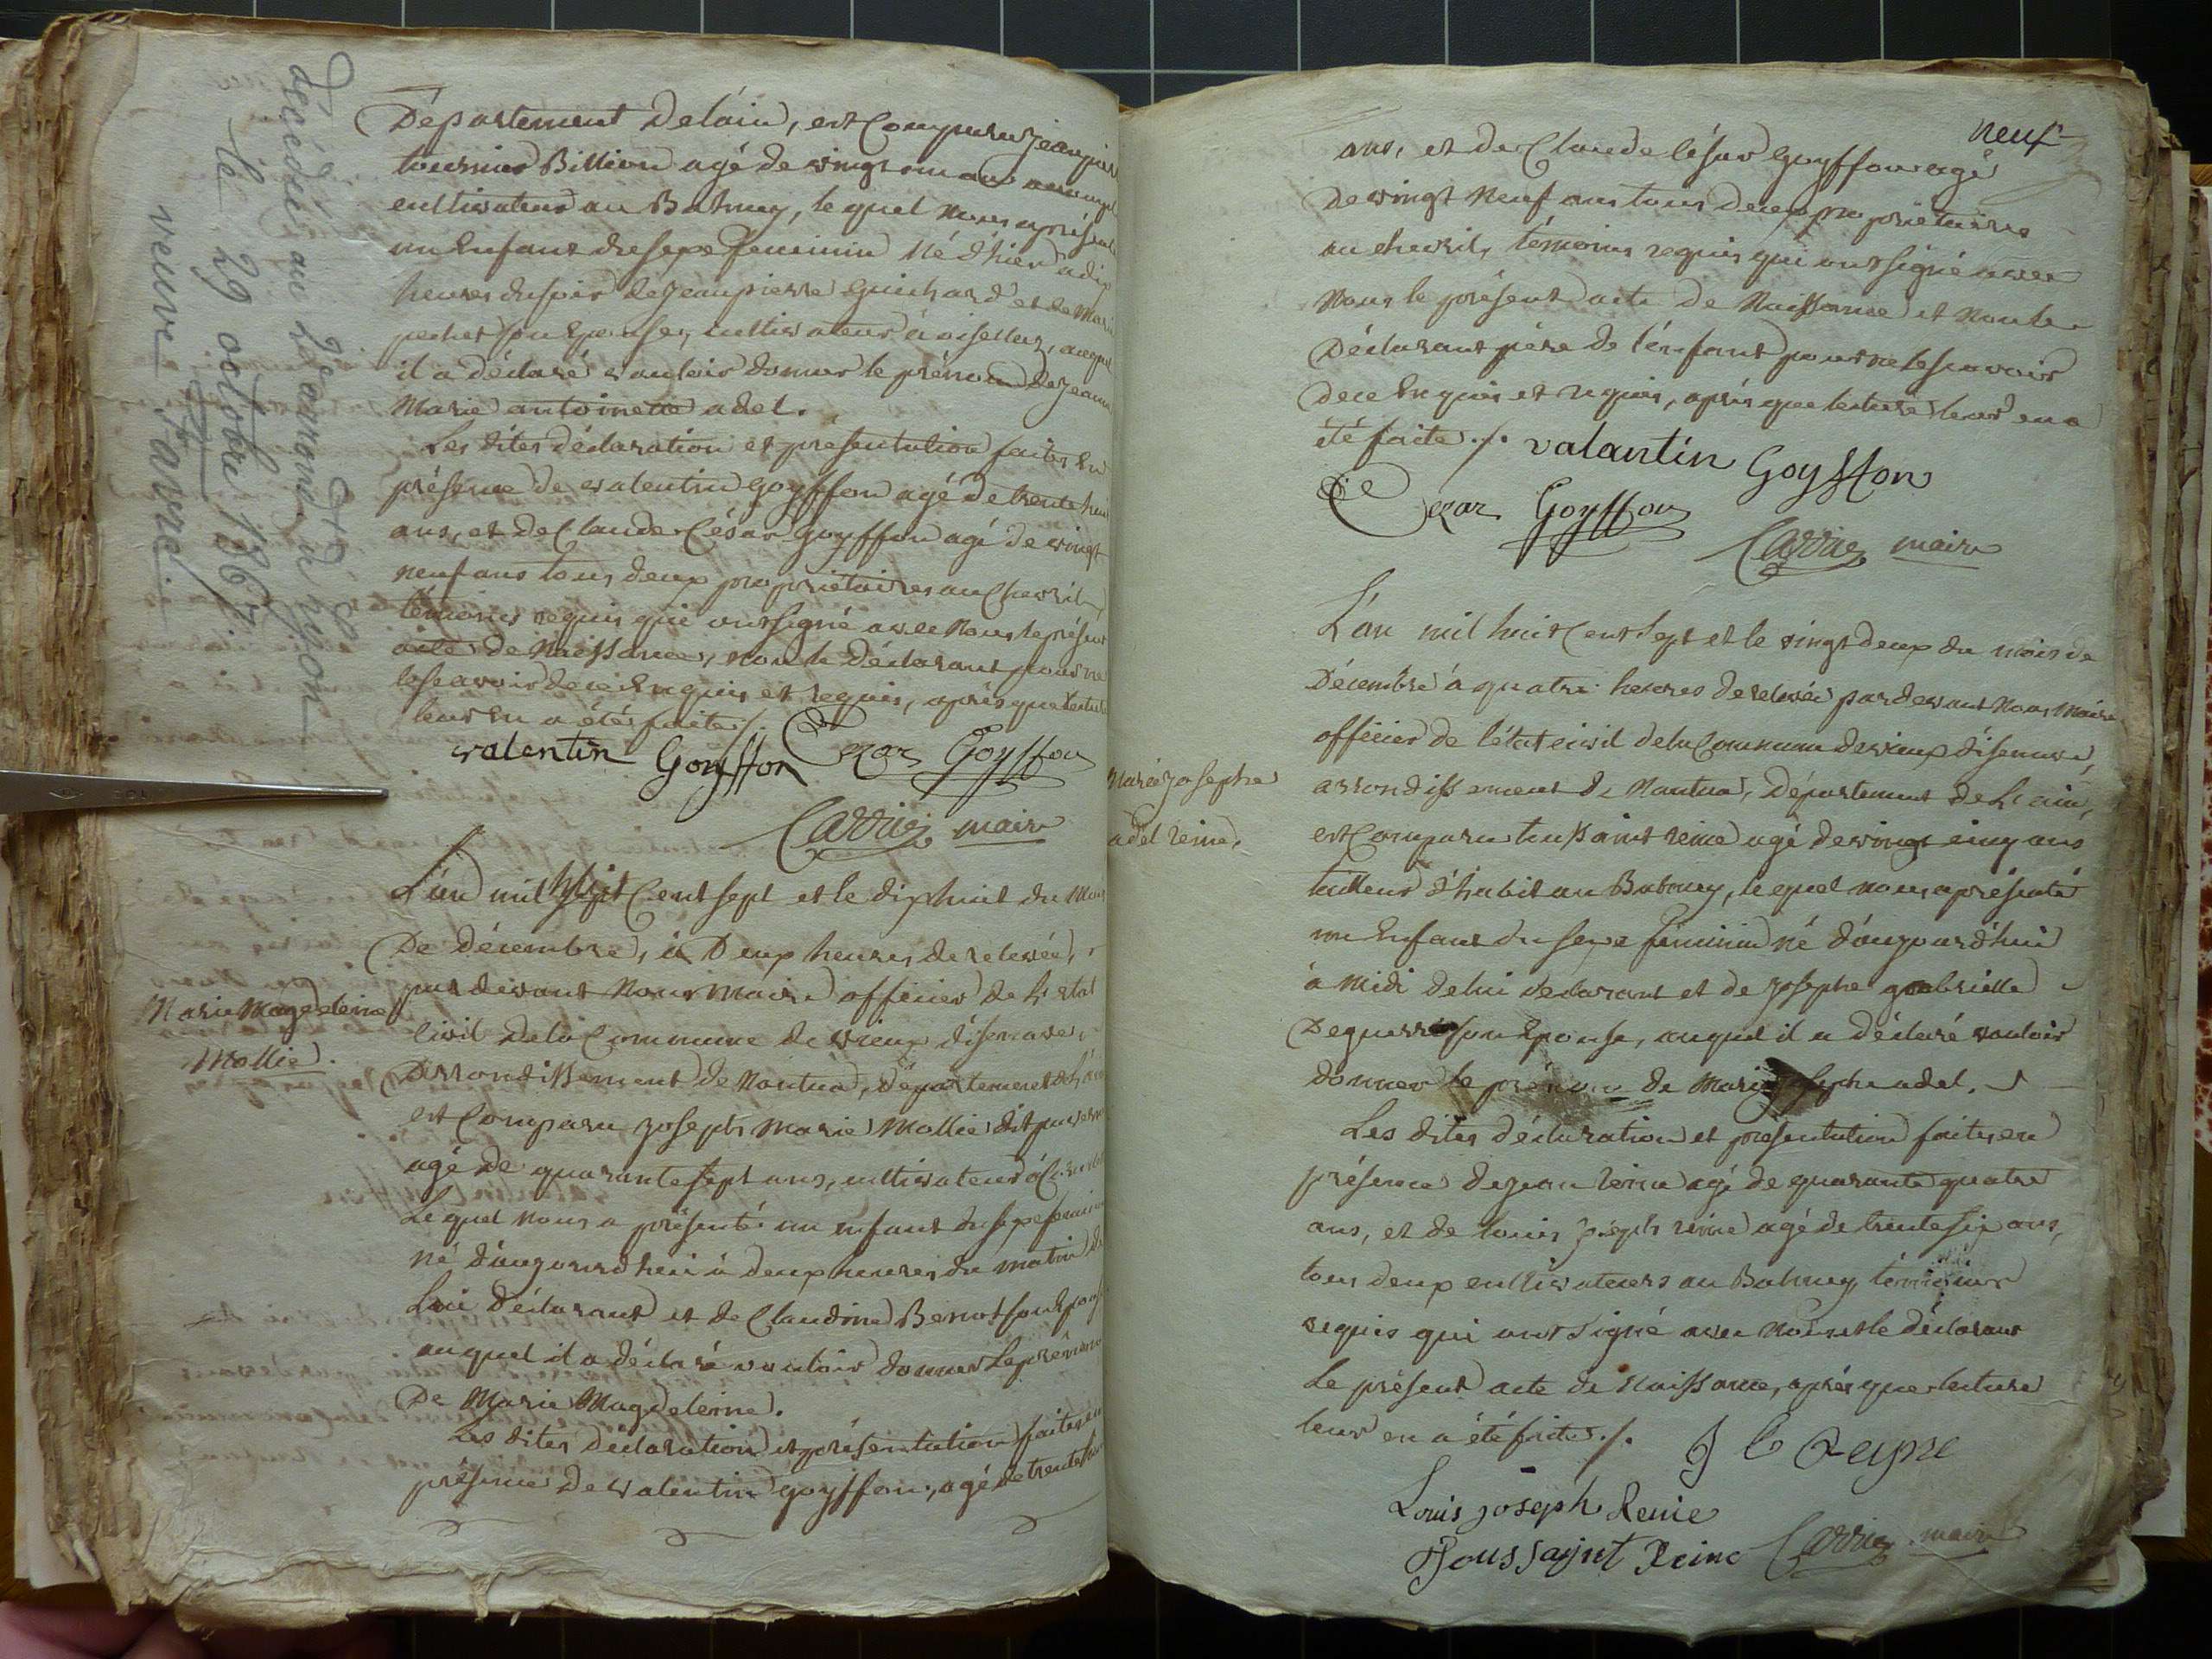 Département delain, est comparu jeanpierre
tournier Billion agé de vingt
cultivateur au Balmey, le quel nous a présenté
un Enfant du sexe feminin né d'hier a dix
heures du soir de jeanpierre Guichard et de Marie
son Epouse, cultivateur à oisellaz, auquel
il a déclaré vouloir donner le prénom de jeanne
Marie antoinette adel.
Les dites déclaration et présentation faites En
présence de valentin Goyffon agé de trente huit
ans, et de Claude César Goyffon agé de vingt
neuf ans tous deux propriétaires au Chevril,
témoins requis qui ont signé avec Nous le présent
acte de Naissance, non le déclarant pour ne
le scavoir de ce Enquis et requis, après que lecture
leur En a été faite ./.
valentin Goyffon Cezar Goyffon
Carrier maire
décédée au
arrond. d'
le 29 octobre 1867
veuve Favre
Marie Magdeleine
Mollie.
L'an mil huit Cent sept et le dixhuit du Mois
De décembre, à Deux heures de relevée,
par devant Nous Maire officier de l'etat
Civil dela Commune de vieux d'isenave,
arrondissement de Nantua, département de l'ain
est Comparu joseph Marie Mollie dit
agé de quarante sept ans, cultivateur à
Le quel nous a présenté un enfant du sexe feminin
né d'aujourd'hui à deux heures du matin de
Lui déclarant et de Claudine Benot son Epouse
auquel il a déclaré vouloir donner le prénom
De Marie Magdeleine.
Les dites déclaration et présentation faites en
présence de valentin goyffon, agé de trente huit
neuf
ans, et de Claude César Goyffon agé
De vingt Neuf ans tous deux propriétaires
au chevril, témoins requis qui ont signé avec
Nous le présent acte de Naissance et non le
Déclarant père de l'enfant pour ne le scavoir
De ce Enquis et requis, après que lecture leur en a
été faite ./. valantin Goyffon
Cezar Goyffon
Carrier maire
Marie josephe
adel reine.
L'an mil huit Cent sept et le vingt deux du mois de
Décembre à quatre heures de relevée par devant Nous Maire
officier de l'état civil dela Commune de vieux d'isenave,
arrondissement de Nantua, Département de L'ain,
est Comparu toussaint reine agé de vingt cinq ans
tailleur d'habit au Balmey, le quel nous a présenté
un Enfant du sexe féminin né d'aujourd'hui
à midi de lui declarant et de josephe gabrielle
Deguerre son Epouse, auquel il a déclaré vouloir
donner le prénom de Marie josephe adel.
Les dites déclaration et présentation faites en
présence de jean reine agé de quarante quatre
ans, et de louis joseph reine agé de trente six ans,
tous deux cultivateurs au Balmey, témoins
requis qui ont signé avec Nous et le déclarant
Le présent acte de Naissance, après que lecture
leur en a été faite ./. J C Reyne
Louis joseph Reine
Toussaint Reine Carrier maire